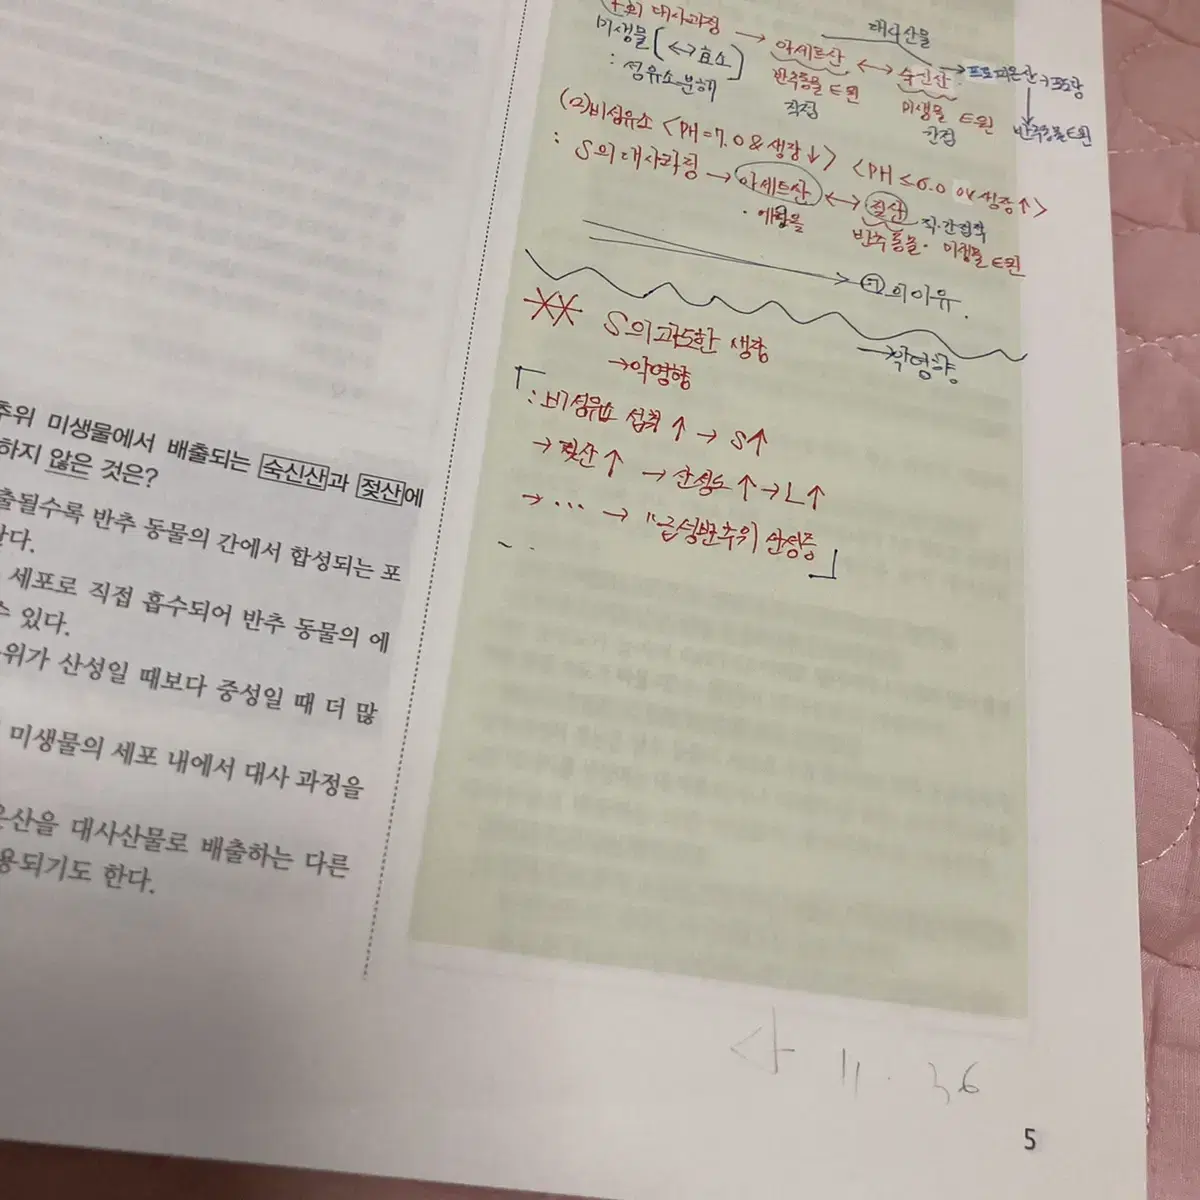 추위 미생물에서 배출되는 숙신산과 젖산에
하지 않은 것은?
출될수록 반추 동물의 간에서 합성되는 포
난다.
세포로 직접 흡수되어 반추 동물의 에
수 있다.
위가 산성일 때보다 중성일 때 더 많
미생물의 세포 내에서 대사 과정을
온산을 대사산물로 배출하는 다른
용되기도 한다.
대사과정 → 아세트산 ↔ 숙신산 → 프로피온산 → 포도당
대사산물
미생물 [↔효소]
: 섬유소 분해
반추동물 E원
직접
미생물 E원
간접
반추동물E원
(2)비섬유소 <PH=7.0 & 생장↓> <PH≤6.0 생장↑>
: S의 대사과정 → 아세트산 ↔ 젖산
직·간접적
반추동물· 미생물 E원
→ ㉠의 이유.
S의 과도한 생장
→악영향
→악영향
「: 비섬유소 섭취↑ → S↑
→ 젖산↑ → 산성도↑→L↑
→ ... → "급성반추위 산성증」
11.36
5